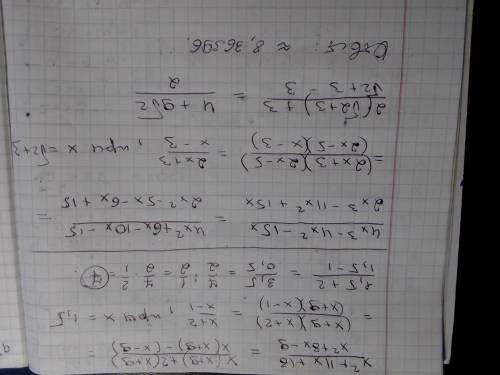 x²+11x+18 / x²+8x-9 = x(x+9)+2(x+9) / x(x+9)-(x-9) =
= (x+9)(x+2) / (x+9)(x-1) = x+2 / x-1 ; при x = 1,5
1,5+2 / 1,5-1 = 3,5 / 0,5 = 7/2 : 1/2 = 7/2 · 2/1 = 7
4x³-4x²-15x / 2x³-11x²+15x = 4x²+6x-10x-15 / 2x²-5x-6x+15 =
= (2x+3)(2x-5) / (2x-5)(x-3) = 2x+3 / x-3 ; при x = √2+3
2(√2+3)+3 / √2+3-3 = 4+9√2 / 2
Ответ: ≈ 8,36396.